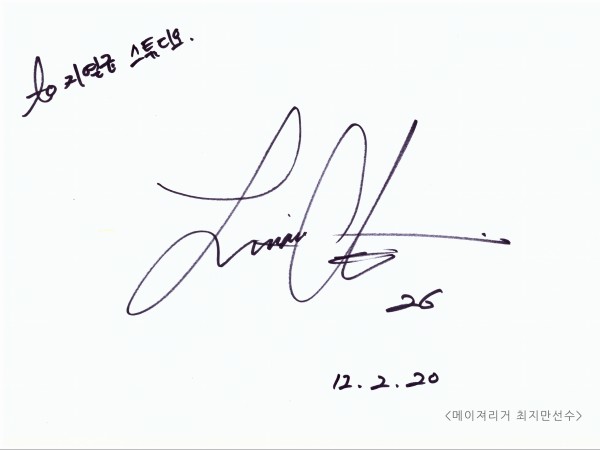 to 지열굽 스튜디오.
26
12.2.20
<메이져리거 최지만선수>